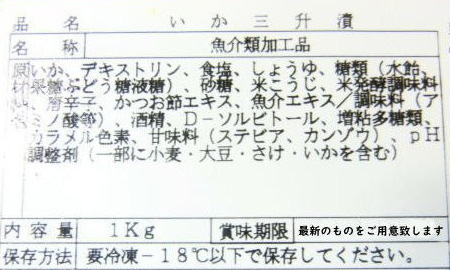 品名 いか三升漬
名称 魚介類加工品
原いか、デキストリン、食塩、しょうゆ、糖類(水飴、
材果糖ぶどう糖液糖)、砂糖、米こうじ、米発酵調味料
唐辛子、かつお節エキス、魚介エキス/調味料(ア
ミノ酸等)、酒精、D-ソルビトール、増粘多糖類、
カラメル色素、甘味料(ステビア、カンゾウ)、pH
調整剤(一部に小麦・大豆・さけ・いかを含む)
内容量 1Kg 賞味期限 最新のものをご用意致します
保存方法 要冷凍-18℃以下で保存してください。